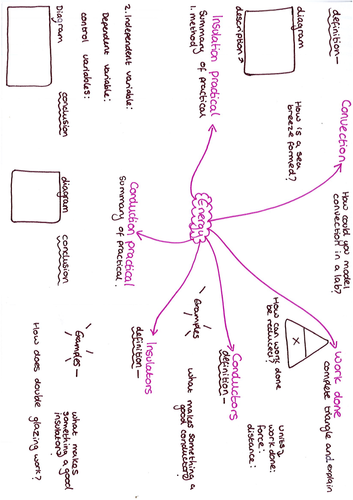 Energy
Convection
definition -
diagram
description?
How is a sea
breeze formed?
How could you model
convection in a lab?
Work done
complete triangle and explain
X
How can work done
be reduced?
units?
work done:
force:
distance:
Conductors
definition -
Examples
what makes something a
good conductor?
Insulators
definition -
Examples -
what makes
something a good
insulator?
How does double
glazing work?
Conduction practical
Summary of practical.
diagram
conclusion
Insulation practical
Summary of practical
1. method
2. independent variable:
Dependent variable:
control variables:
Diagram
conclusion